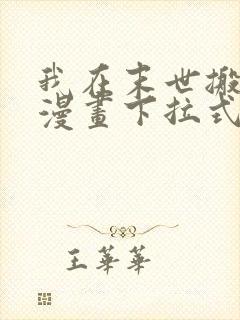 我在末世搬
漫畫下拉式
王華華